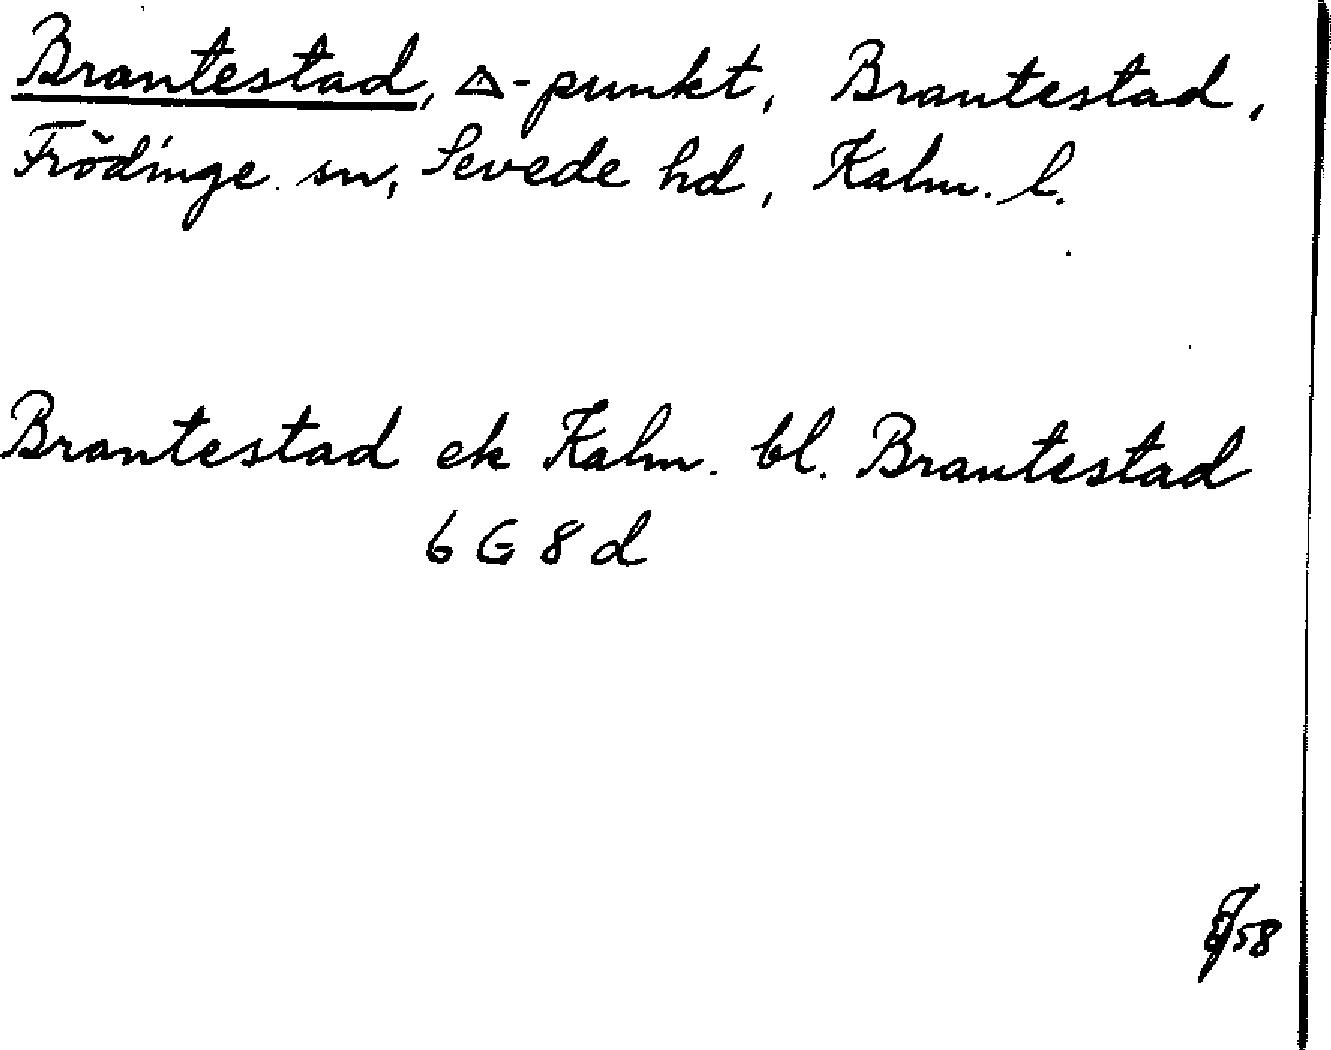 Brantestad, △-punkt, Brantestad,
Frödinge sn, Sevede hd, Kalm. l.
Brantestad ek Kalm. bl. Brantestad
6 G 8 d
58